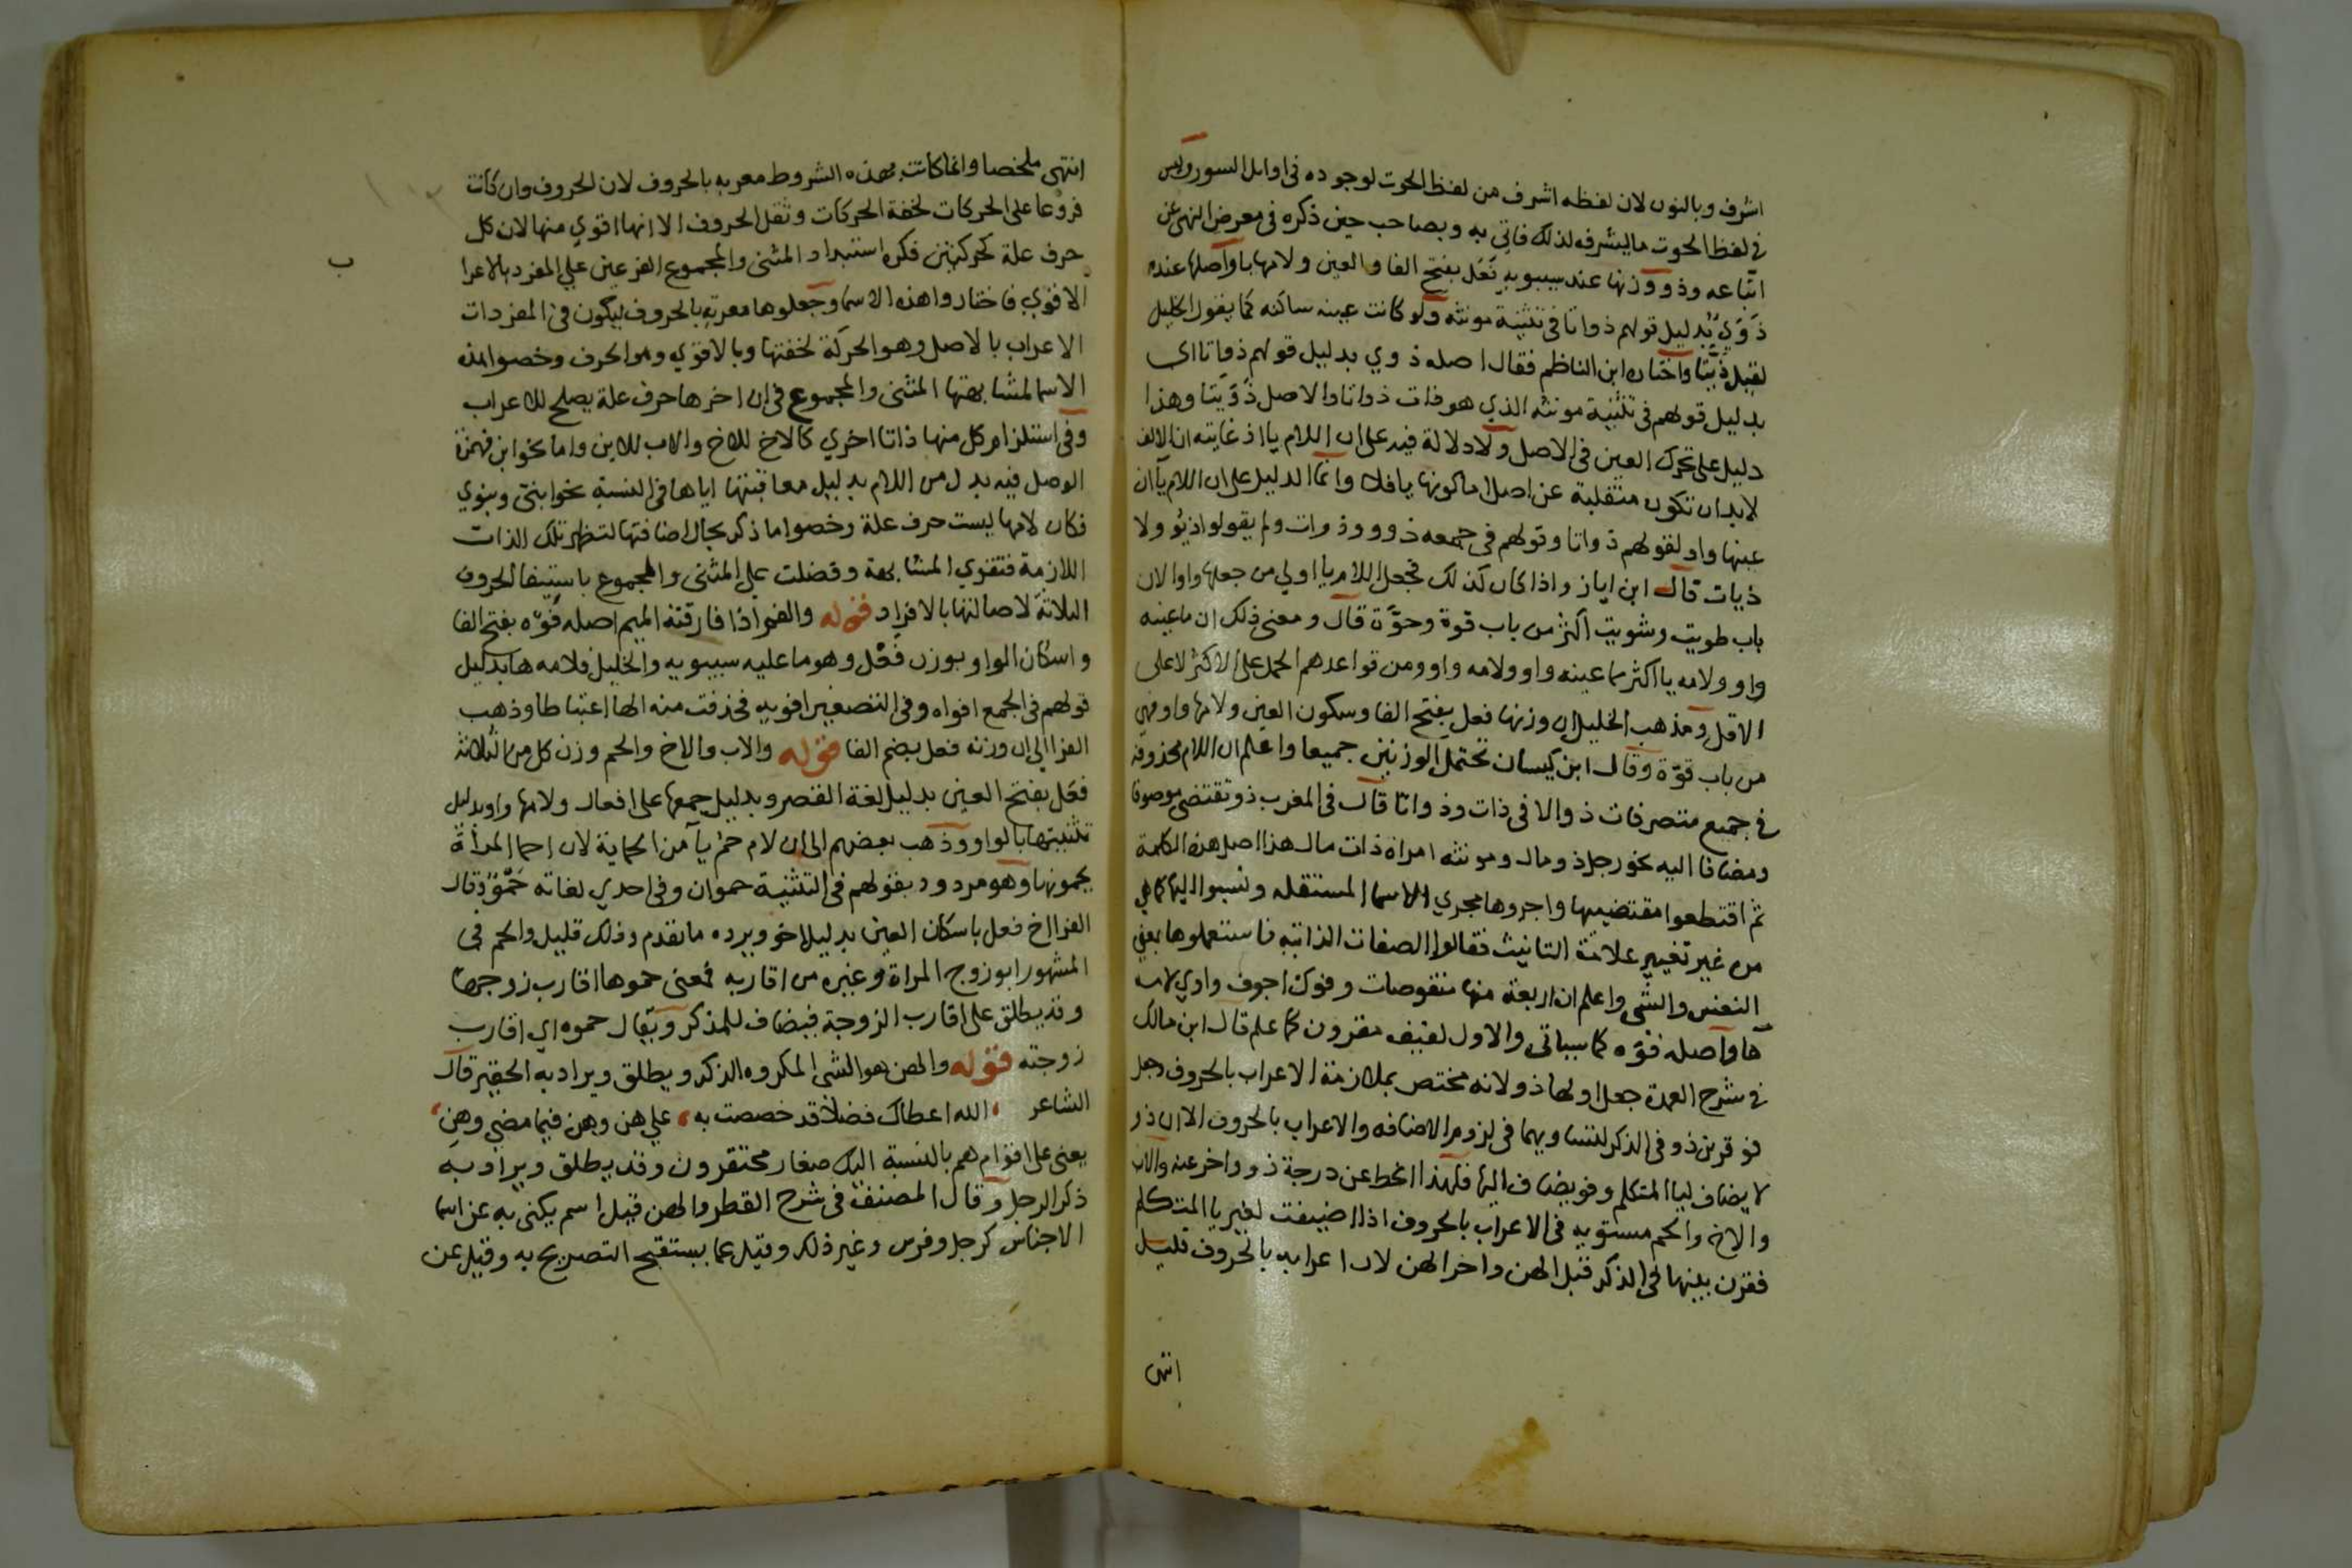 اشرف وبالنون لان لفظه اشرف من لفظ الحوت لوجوده في اوايل السور وليس
في لفظ الحوت ما ليشرفه لذلك فاتي به وبصاحب حين ذكره في معرض النهي عن
اتباعه وذو ووزنها عند سيبويه فَعَل بفتح الفا والعين ولامها يا واصلها عنده
ذَوَيٌ بدليل قولهم ذواتا في تثنية مونثه ولو كانت عينه ساكنه كما يقول الخليل
لقيل ذيتا واختاره ابن الناظم فقال اصله ذوي بدليل قولهم ذواتا اي
بدليل قولهم في تثنية مونثه الذي هو ذات ذواتا والاصل ذَوَيتا وهذا
دليل على تحرك العين في الاصل ولا دلالة فيه على ان اللام يا اذ غايته ان الالف
لابد ان تكون منقلبة عن اصل اما كونها يا فلا وانما الدليل على ان اللام يا ان
عينها واو لقولهم ذواتا وقولهم في جمعه ذوو وذوات ولم يقولوا ذيو ولا
ذيات قال ابن اياز واذا كان كذلك فجعل اللام يا اولي من جعلها واوا لان
باب طويت وشويت اكثر من باب قوة وحوّة قال ومعنى ذلك ان ما عينه
واو ولامه يا اكثر مما عينه واو ولامه واو ومن قواعدهم الحمل على الاكثر لا على
الاقل ومذهب الخليل ان وزنها فعل بفتح الفا وسكون العين ولامها واو فهي
من باب قوّة وقال ابن كيسان تحتمل الوزنين جميعا واعلم ان اللام محذوفه
في جميع متصرفات ذو الا في ذات وذواتا قال في المغرب ذو تقتضي موصوفا
ومضافا اليه نحو رجل ذو مال ومونثه امراة ذات مال هذا اصل هذه الكلمة
ثم اقتطعوا مقتضييها واجروها مجري الاسما المستقله ونسبوا اليها كما هي
من غير تغيير علامة التانيث فقالوا الصفات الذاتيه فاستعملوها بمعني
النفس والشي واعلم ان اربعة منها منقوصات وفوك اجوف واوي لامه
ها واصله فوّه كما سياتي والاول لفيف مقرون كما علم قال ابن مالك
في شرح العمدة جعل اولها ذو لانه مختص بملازمة الاعراب بالحروف وجعل
فو قرين ذو في الذكر لتساويهما في لزوم الاضافه والاعراب بالحروف الا ان ذو
لا يضاف ليا المتكلم وفو يضاف اليها فلهذا انحط عن درجة ذو واخر عنه والاب
والاخ والحم مستويه في الاعراب بالحروف اذا اضيفت لغير يا المتكلم
فقرن بينها في الذكر قبل الهن واخر الهن لان اعرابه بالحروف قليل
انتهى
انتهى ملخصا وانما كانت بهذه الشروط معربه بالحروف لان الحروف وان كانت
فروعا على الحركات لخفة الحركات وثقل الحروف الا انها اقوي منها لان كل
حرف علة كحركتين فكره استبداد المثنى والمجموع الفرعين علي المفرد بالاعرا
ب
الاقوي فاختاروا هذه الاسما وجعلوها معربه بالحروف ليكون في المفردات
الاعراب بالاصل وهو الحركة لخفتها وبالاقوي وهو الحرف وخصوا هذه
الاسما لمشابهتها المثنى والمجموع في ان اخرها حرف علة يصلح للاعراب
وفي استلزام كل منها ذاتا اخري كالاخ للاخ والاب للابن واما نحو ابن فهمزة
الوصل فيه بدل من اللام بدليل معاقبتها اياها في النسبة نحو ابني وبنوي
فكان لامها ليست حرف علة وخصوا ما ذكر بحال اضافتها لتظهر تلك الذات
اللازمة فتقوي المشابهة وفضلت علي المثنى والمجموع باستيفا الحروف
الثلاثة لاصالتها بالافراد قوله والفم اذا فارقته الميم اصله فَوْه بفتح الفا
واسكان الواو بوزن فَعْل وهو ما عليه سيبويه والخليل فلامه ها بدليل
قولهم في الجمع افواه وفي التصغير افويه فحذفت منه الها اعتباطا وذهب
الفرا الي ان وزنه فعل بضم الفا قوله والاب والاخ والحم وزن كل من الثلاثة
فعَل بفتح العين بدليل لغة القصر وبدليل جمعها على افعال ولامها واو بدليل
تثنيتها بالواو وذهب بعضهم الى ان لام حم يا من الحماية لان احما المراة
يحمونها وهو مردود بقولهم في التثنية حموان وفي احدي لغاته حَمْوٌ وقال
الفرا اخ فعل باسكان العين بدليل اخو ويرده ما تقدم وذلك قليل والحم في
المشهور ابو زوج المراة وغيره من اقاربه فمعنى حموها اقارب زوجها
وقد يطلق على اقارب الزوجة فيضاف للمذكر ويقال حموه اي اقارب
زوجته قوله والهن هو الشي المكروه الذكر ويطلق ويراد به الحقير قال
الشاعر ، الله اعطاك فضلا قد خصصت به ، علي هن وهن فيما مضي وهن ،
يعني على اقوام هم بالنسبة اليك صغار محتقرون وقد يطلق ويراد به
ذكر الرجل وقال المصنف في شرح القطر والهن قيل اسم يكنى به عن اسما
الاجناس كرجل وفرس وغير ذلك وقيل عما يستقبح التصريح به وقيل عن